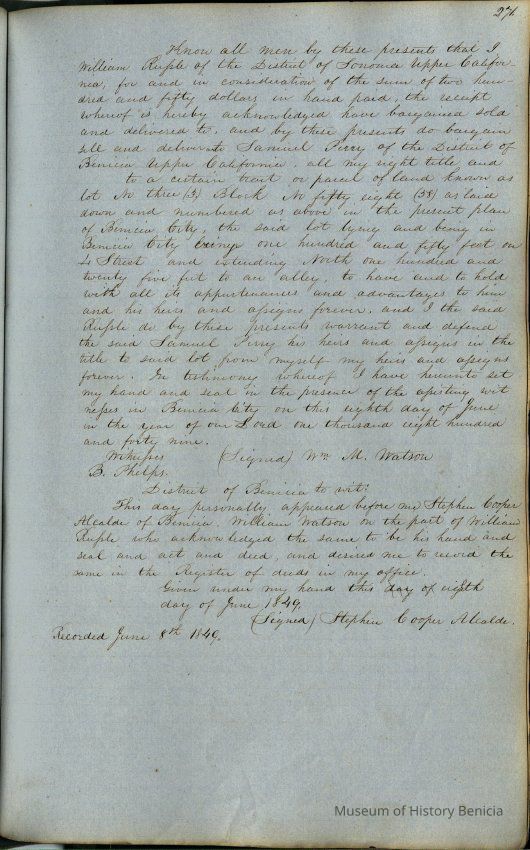 27
Know all men by these presents that I
William Russle of the District of Sonoma Upper Califor-
nia, for and in consideration of the sum of two hun-
dred and fifty dollars in hand paid, the receipt
whereof is hereby acknowledged have bargained sold
and delivered to, and by these presents do bargain
sell and deliver to Samuel Perry of the District of
Benicia Upper California, all my right title and
to a certain tract or parcel of land known as
lot No three (3) Block No fifty eight (58) as laid
down and numbered as above in the present plan
of Benicia City, the said lot lying and being in
Benicia City one hundred and fifty foot on
Street and extending North one hundred and
twenty five feet to an alley, to have and to hold
with all its appurtenances and advantages to him
and his heirs and assigns forever, and I the said
Russle do by these presents warrant and defend
the said Samuel Perry his heirs and assigns in the
title to said lot from myself my heirs and assigns
forever. In testimony whereof I have hereunto set
my hand and seal in the presence of the assisting wit
nesses in Benicia City on this eighth day of June
in the year of our Lord one thousand eight hundred
and forty nine.
Witnesses (Signed) Wm M. Watson
B. Phelps.
District of Benicia to wit:
This day personally appeared before me Stephen Cooper
Alcalde of Benicia, William Watson on the part of William
Russle who acknowledged the same to be his hand and
seal and act and deed, and desired me to record the
same in the Register of deeds in my office.
Given under my hand this day of eighth
day of June 1849.
(Signed) Stephen Cooper Alcalde.
Recorded June 8th 1849.
Museum of History Benicia